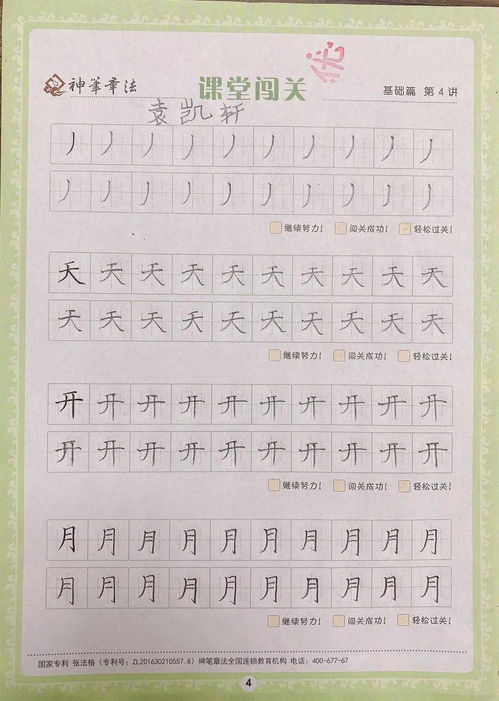 优
神笔章法 课堂闯关 基础篇 第4讲
袁凯轩
丿丿丿丿丿丿丿丿丿丿
丿丿丿丿丿丿丿丿丿丿
继续努力! 闯关成功! 轻松过关!
天天天天天天天天天天
天天天天天天天天天天
继续努力! 闯关成功! 轻松过关!
开开开开开开开开开开
开开开开开开开开开开
继续努力! 闯关成功! 轻松过关!
月月月月月月月月月月
月月月月月月月月月月
继续努力! 闯关成功! 轻松过关!
国家专利 张法格(专利号:ZL201630210557.8)神笔章法全国连锁教育机构 电话:400-677-67
4